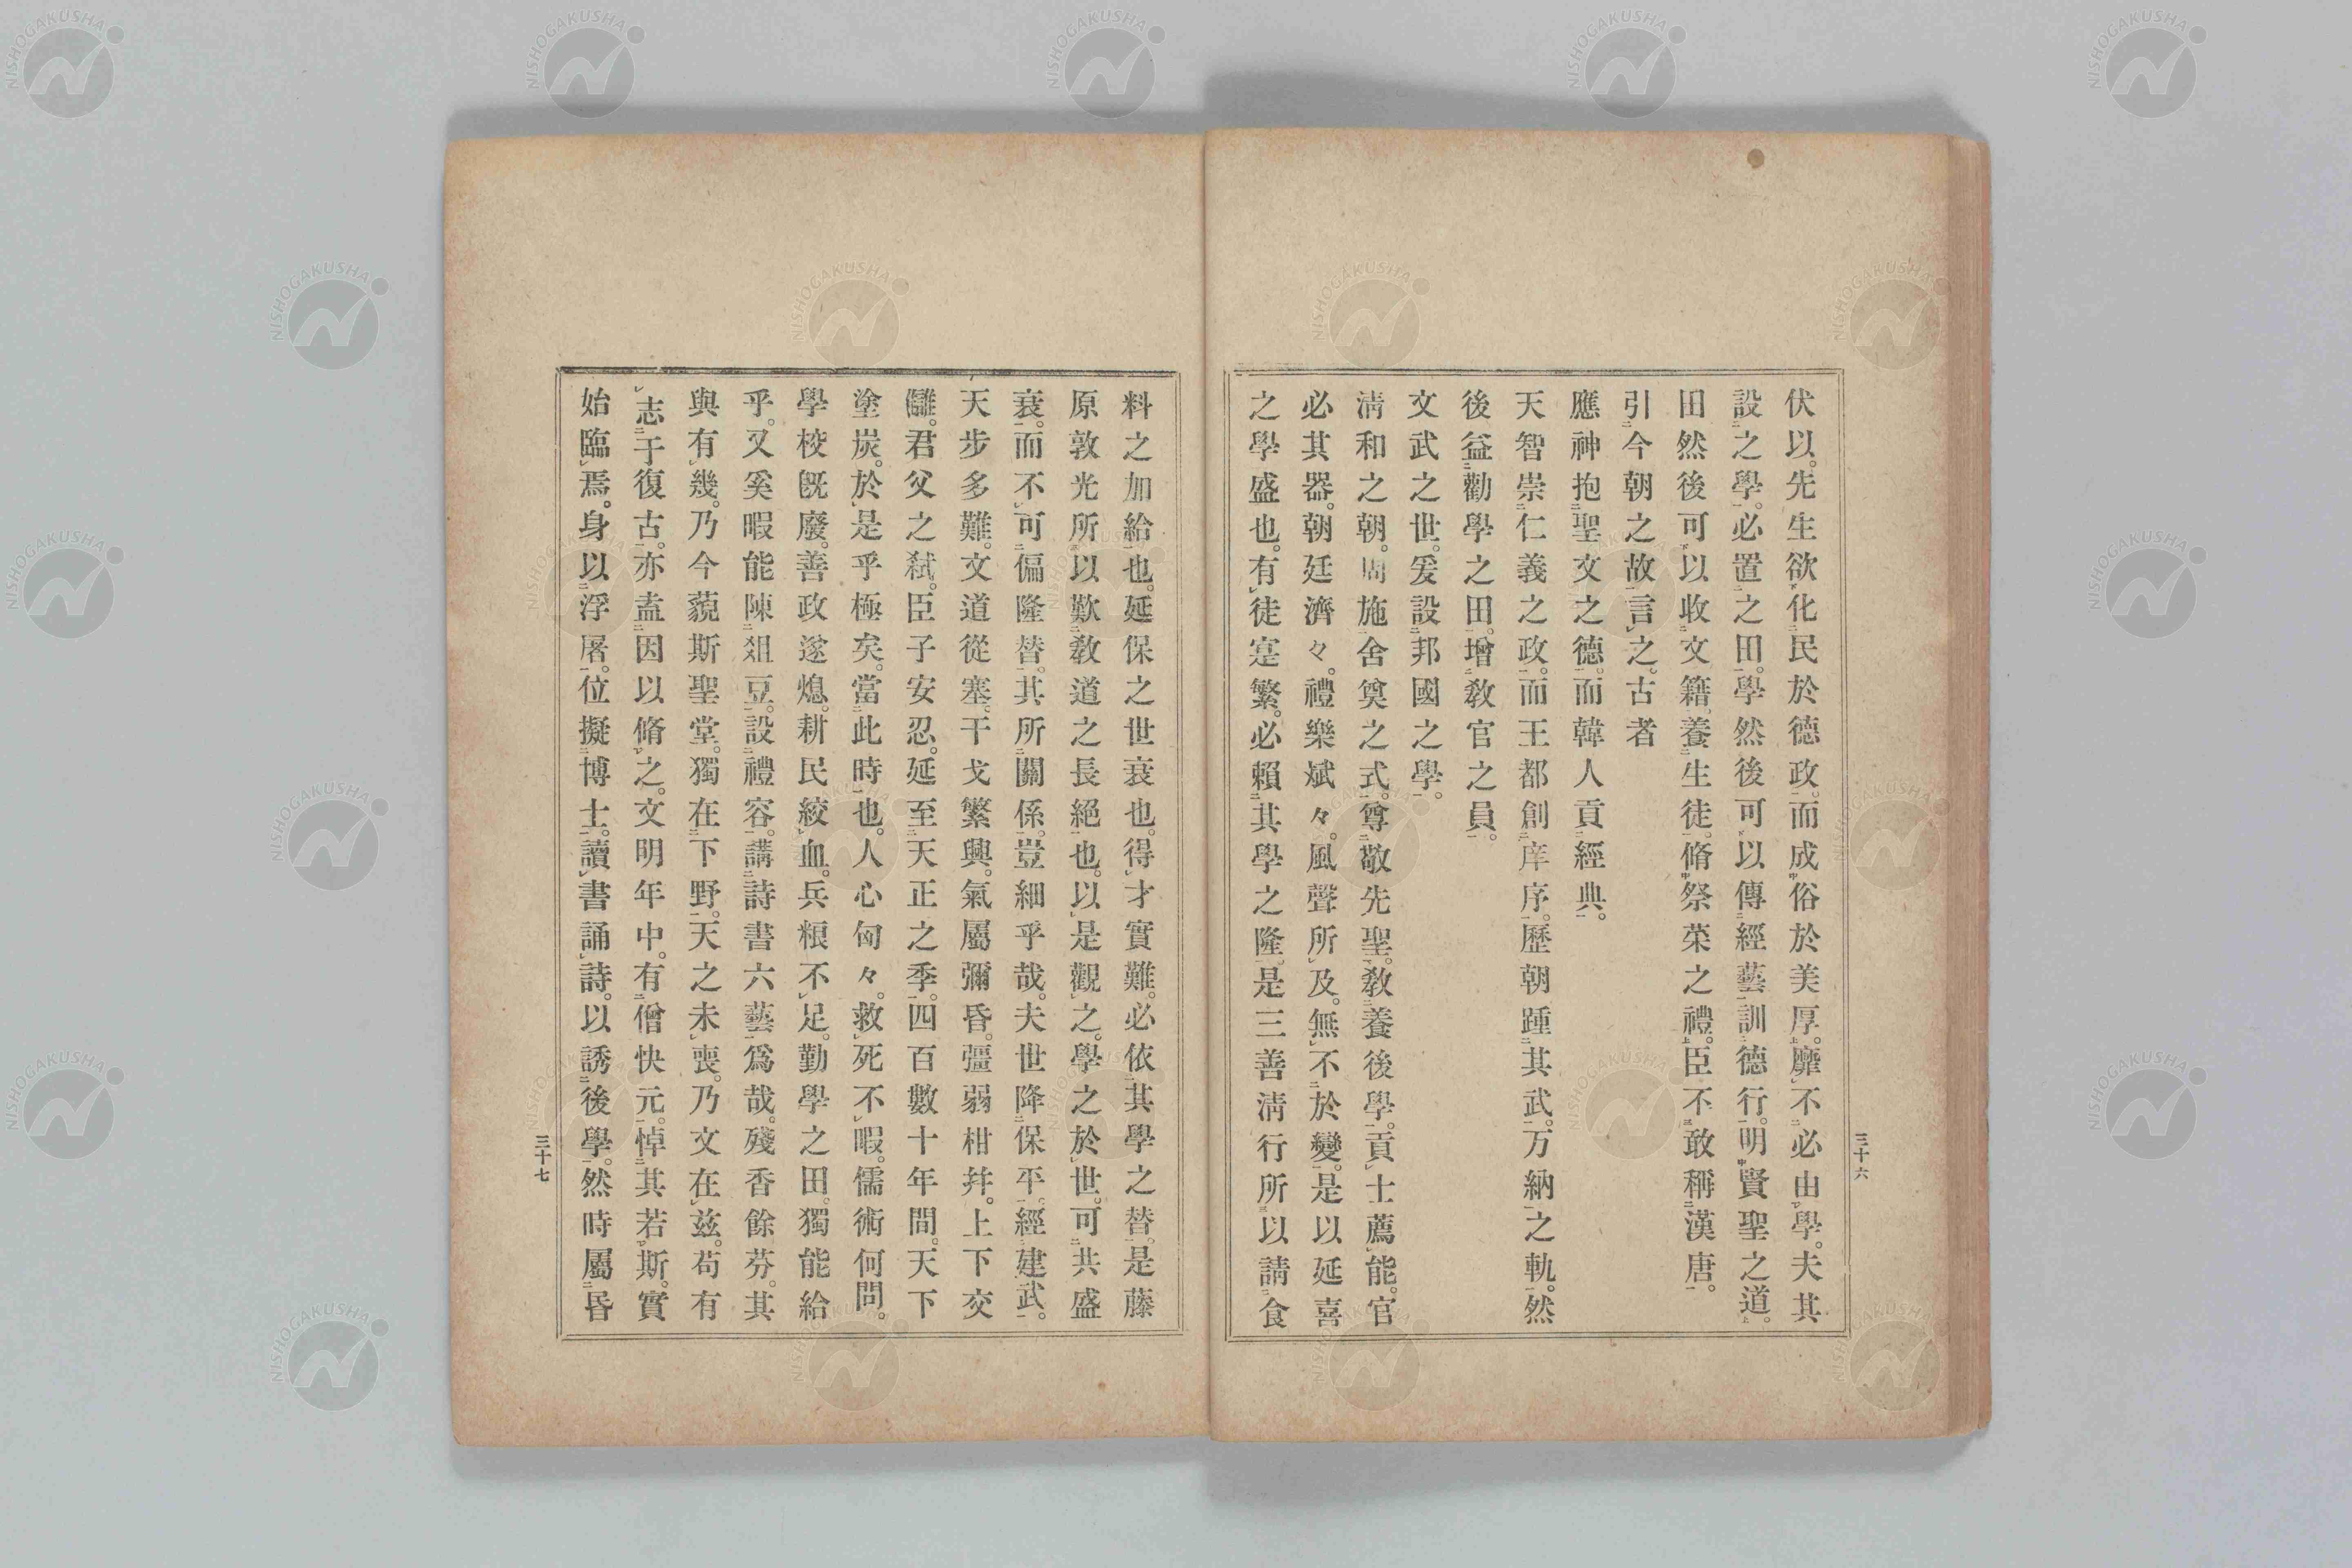 伏以。先生欲化民於德政。而成俗於美厚。靡不必由學。夫其
設之學。必置之田。學然後可以傳經藝訓德行。明賢聖之道。
田然後可以收文籍養生徒。脩祭菜之禮。臣不敢稱漢唐。
引今朝之故言之。古者
應神抱聖文之德。而韓人貢經典。
天智崇仁義之政。而王都創庠序。歷朝踵其武。万納之軌。然
後益勸學之田。增敎官之員。
文武之世。爰設邦國之學。
淸和之朝。周施舍奠之式。尊敬先聖。敎養後學。貢士薦能。官
必其器。朝廷濟々。禮樂斌々。風聲所及。無不於變。是以延喜
之學盛也。有徒寔繁。必賴其學之隆。是三善淸行所以請食
三十六
料之加給也。延保之世衰也。得才實難。必依其學之替。是藤
原敦光所以歎敎道之長絕也。以是觀之。學之於世。可共盛
衰。而不可偏隆替。其所關係。豈細乎哉。夫世降保平。經建武。
天步多難。文道從塞。干戈繁興。氣屬彌昏。彊弱柑幷。上下交
讎。君父之弑。臣子安忍。延至天正之季。四百數十年間。天下
塗炭。於是乎極矣。當此時也。人心匈々。救死不暇。儒術何問。
學校旣廢。善政遂熄。耕民絞血。兵粮不足。勤學之田。獨能給
乎。又奚暇能陳俎豆。設禮容。講詩書六藝爲哉。殘香餘芬。其
與有幾。乃今藐斯聖堂。獨在下野。天之未喪。乃文在玆。苟有
志于復古。亦盍因以脩之。文明年中。有僧快元。悼其若斯。實
始臨焉。身以浮屠。位擬博士。讀書誦詩。以誘後學。然時屬昏
三十七
NISHOGAKUSHA